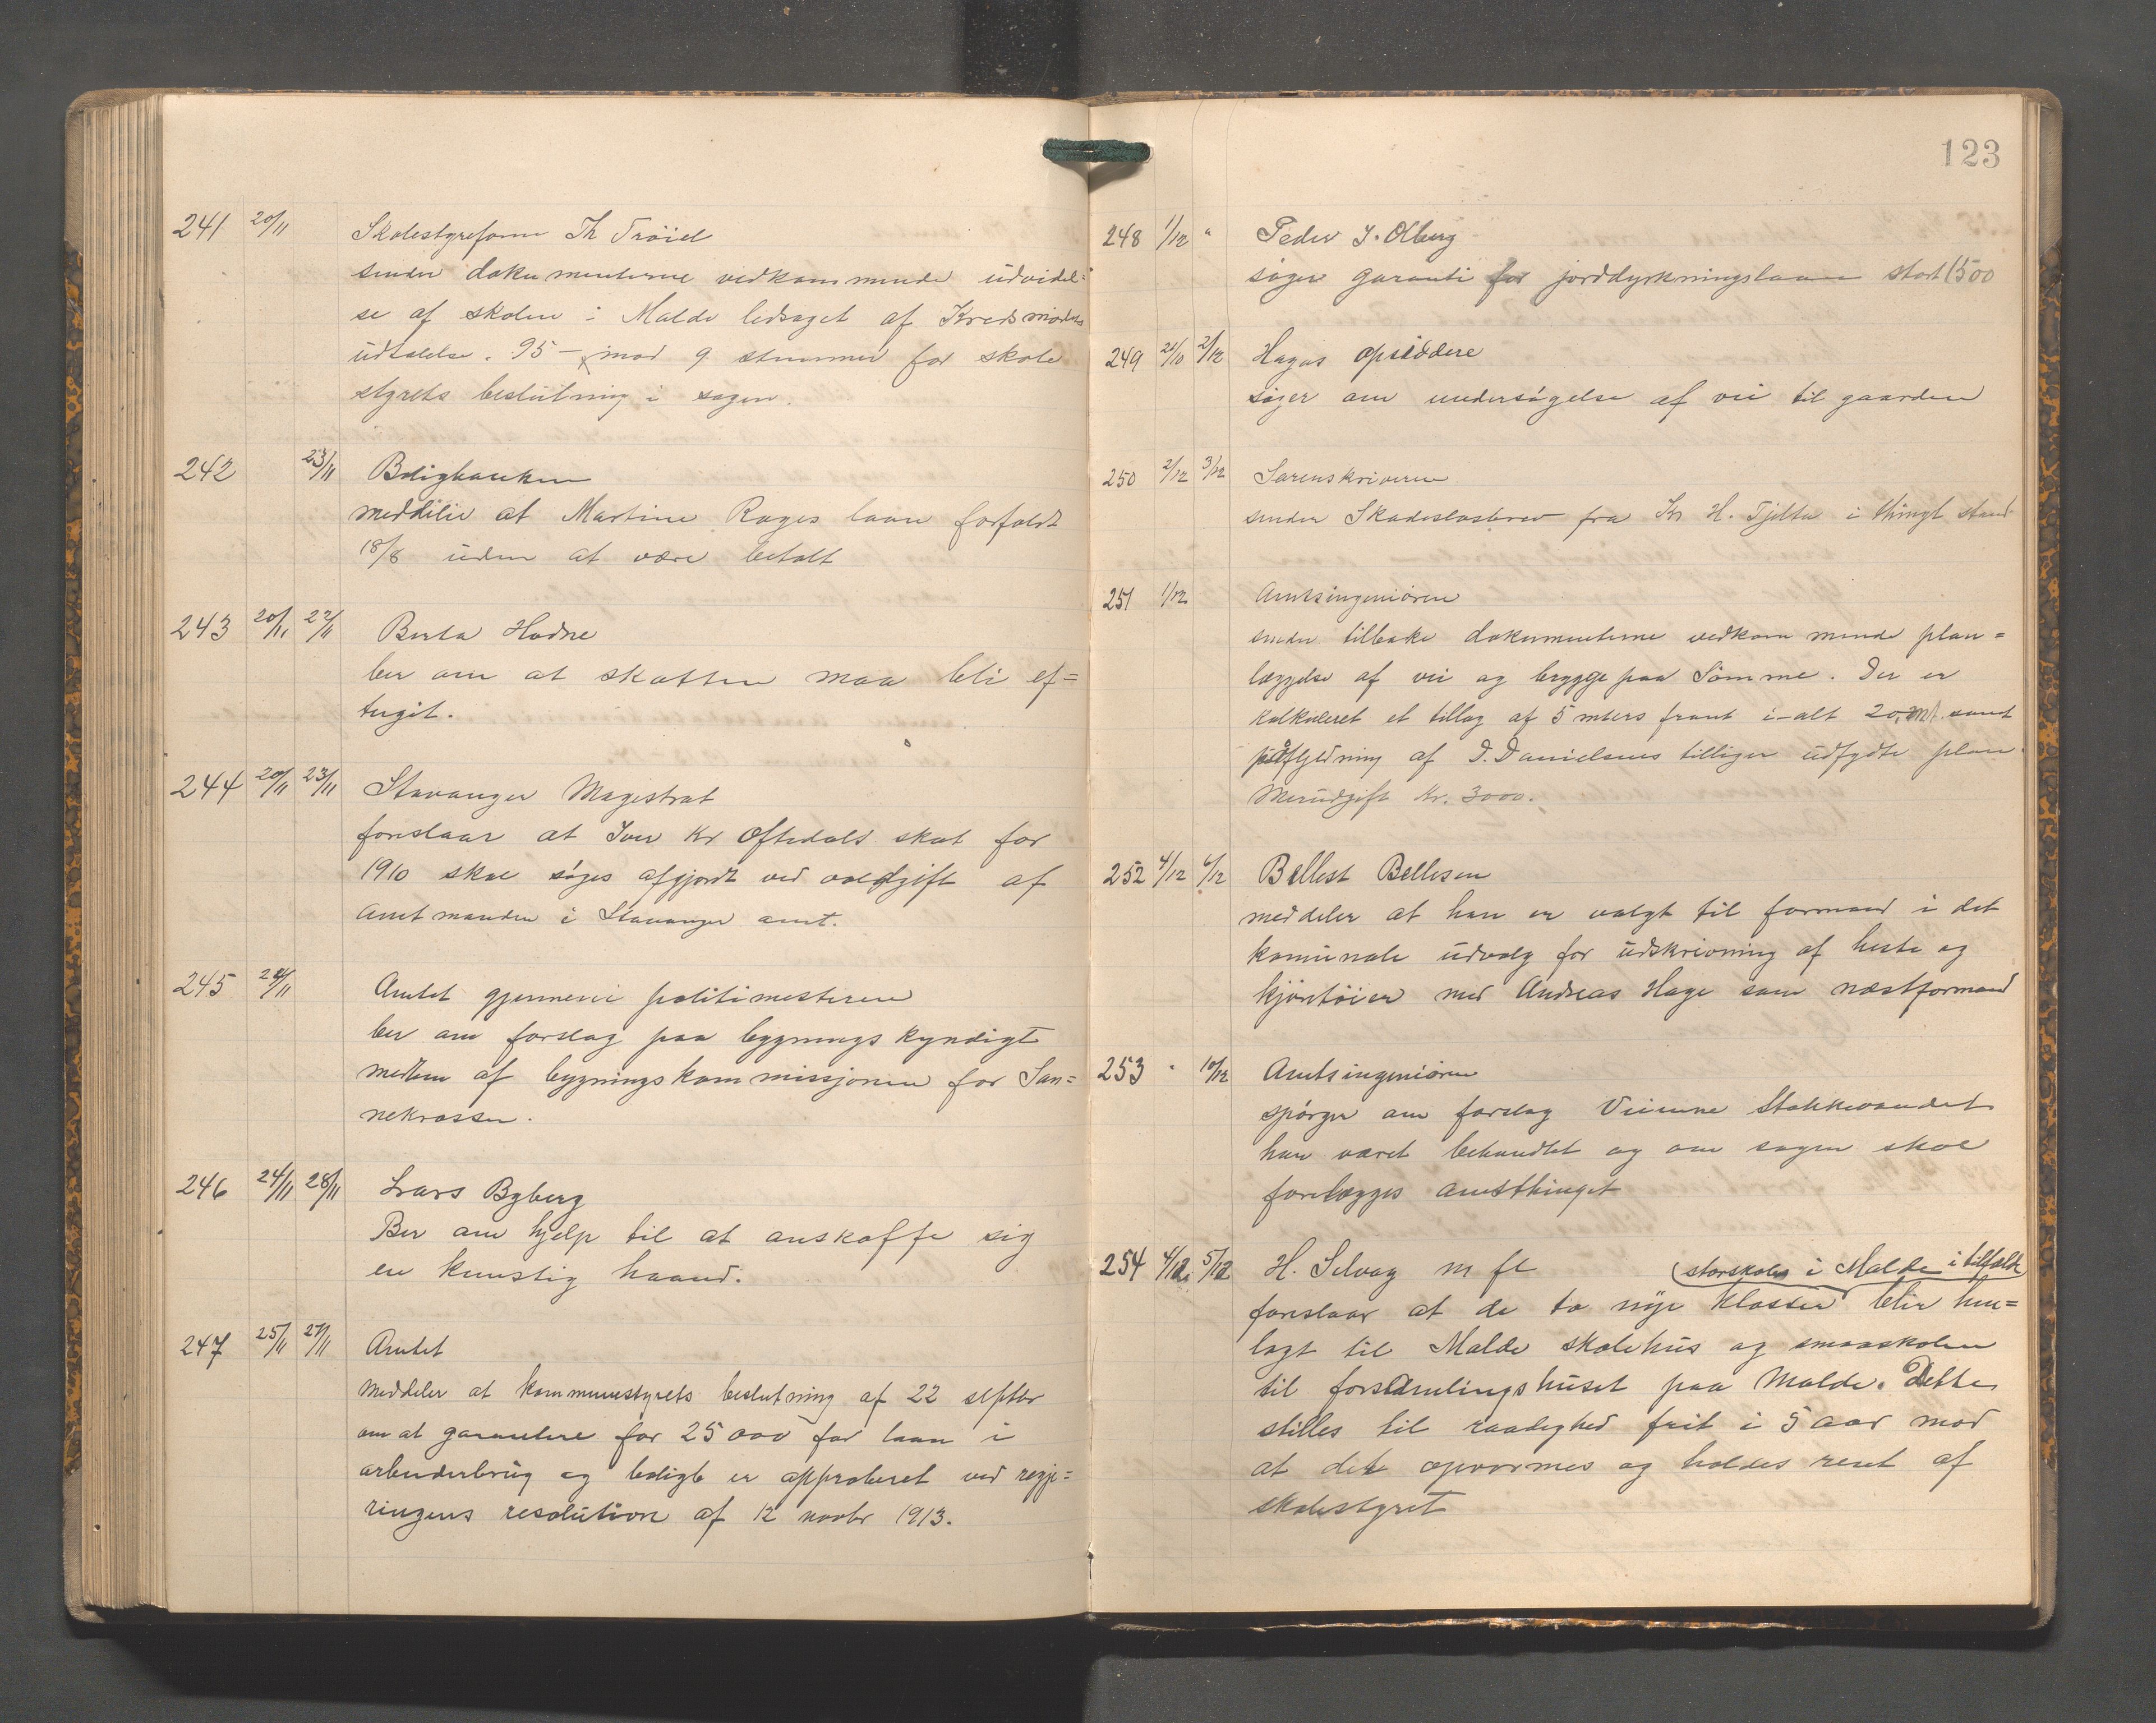 241 20/11 Skolestyreform Th Tröiel
sender dokumenterne vedkommende udvidel=
se af skolen i Malde ledsaget af Kredsmödets
udtalelse. 95 – mod 9 stemmer for skole
styrets beslutning i sagen.
242 23/11 Boligbanken
meddeler at Martine Roges laan forfaldt
18/8 uden at være betalt
243 20/11 22/11 Berta Hodne
ber om at skatten maa bli ef=
tergit.
244 20/11 23/11 Stavanger Magistrat
foreslaar at Iver Kr Oftedals skat for
1910 skal søges afgjordt ved voldgift af
Amtmanden i Stavanger amt.
245 24/11 Amtet gjennem politimesteren
ber om forslag paa bygningskyndigt
medlem af bygningskommissjonen for San=
nekrossen.
246 24/11 28/11 Lars Byberg
Ber om hjelp til at anskaffe sig
en kunstig haand.
247 25/11 27/11 Amtet
Meddeler at kommunestyrets beslutning af 22 septbr
om at garantere for 25000 for laan i
arbeiderbrug og bolige er approberet ved regje=
ringens resolution af 12 novbr 1913.
123
248 1/12 " Peder J. Olberg
søger garanti for jorddyrkningslaan stort 1500
249 21/10 2/12 Hagas opsiddere
søger om undersøgelse af vei til gaarden
250 2/12 3/12 Sorenskriveren
sender Skadesløsbrev fra Kr H. Tjelta i thinglt stand
251 1/12 Amtsingeniøren
sender tilbake dokumenterne vedkommende plan=
læggelse af vei og brygge paa Sömme. Der er
kalkuleret et tillæg af 5 meters front i-alt 20 mt. samt
opfyldning af D. Danielsens tilliger udfyldte plan
Merudgift Kr. 3000.
252 4/12 6/12 Bellest Bellesen
meddeler at han er valgt til formand i det
komunale udvalg for udskrivning af heste og
kjøretøier med Andreas Hage som næstformand
253 " 10/12 Amtsingeniøren
spørger om forslag Veiene Stokkevandet
har været behandlet og om sagen skal
forelægges amtsthinget
254 4/12 5/12 H. Selvag m fl
(storskolen i Malde i tilfælde
foreslaar at de to nye klasser blir hen=
lagt til Malde skolehus og smaaskolen
til forsamlingshuset paa Malde. Dette
stilles til raadighed frit i 5 aar mod
at det opvarmes og holdes rent af
skolestyret